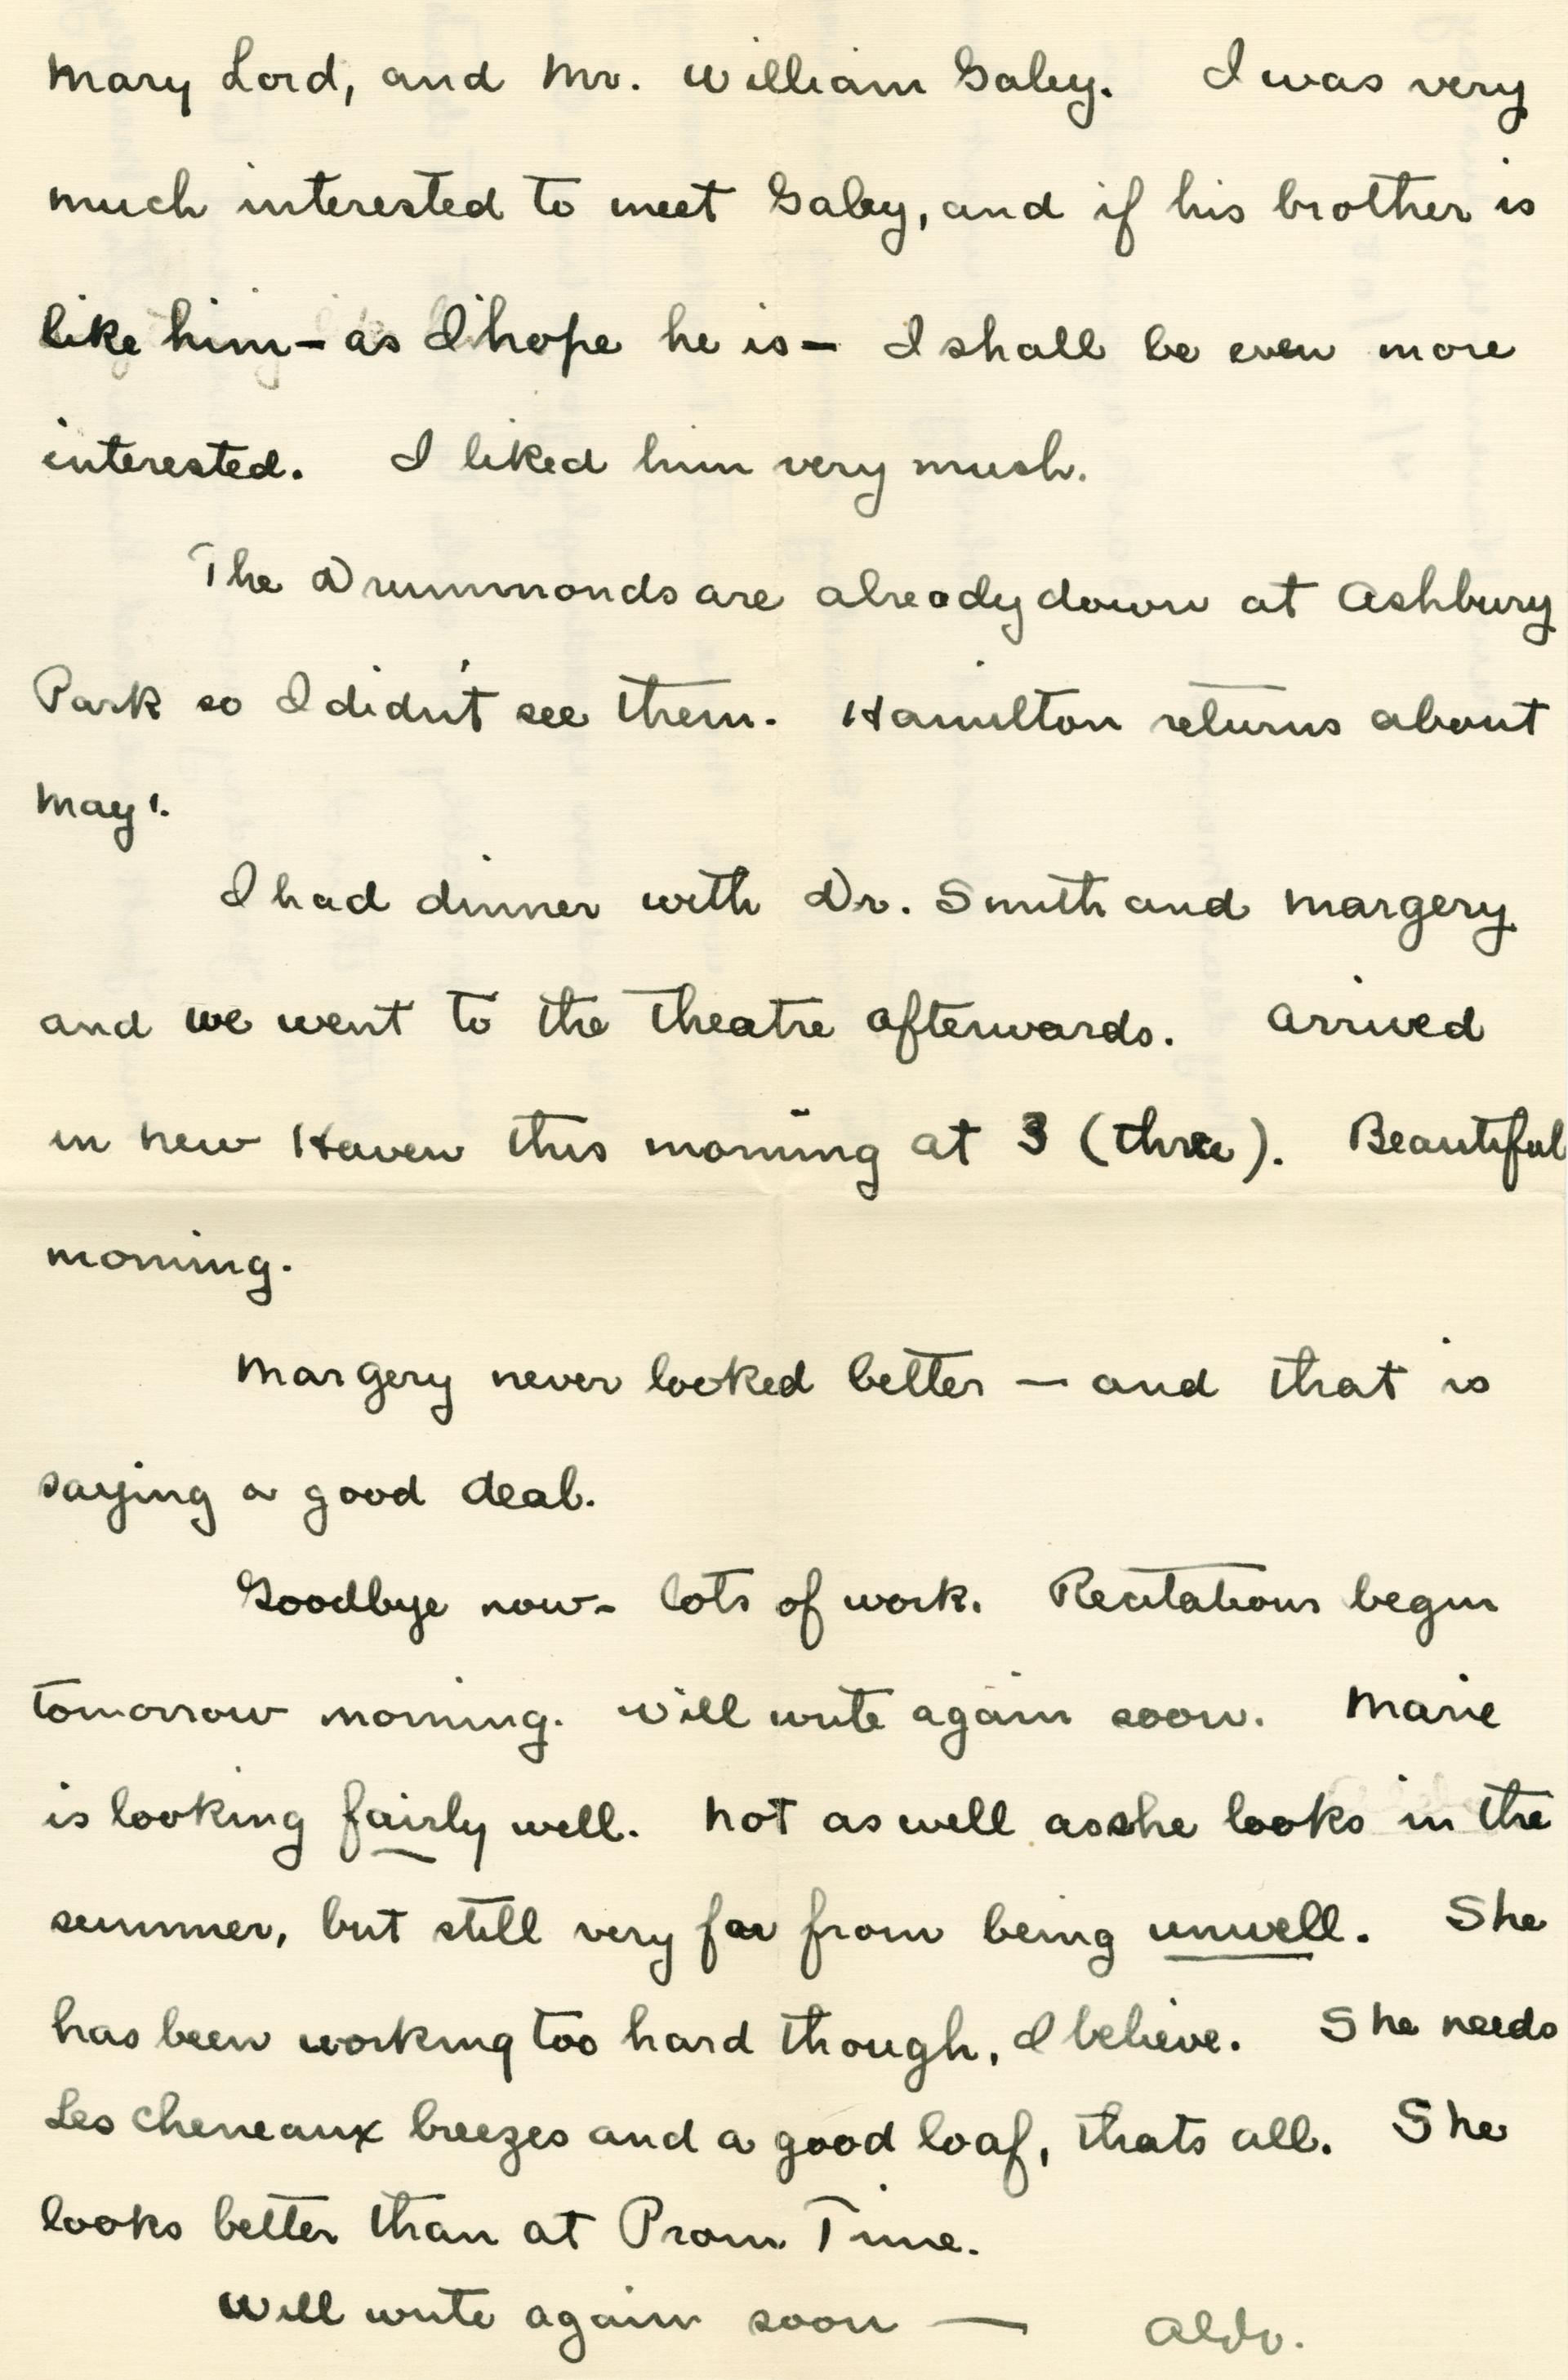 Mary Lord, and Mr. William Galey. I was very
much interested to meet Galey, and if his brother is
like him – as I hope he is – I shall be even more
interested. I liked him very much.
The Drummonds are already down at Ashbury
Park so I didn't see them. Hamilton returns about
May 1.
I had dinner with Dr. Smith and Margery
and we went to the theatre afterwards. Arrived
in New Haven this morning at 3 (three). Beautiful
morning.
Margery never looked better — and that is
saying a good deal.
Goodbye now – lots of work. Recitations begin
tomorrow morning. Will write again soon. Marie
is looking fairly well. Not as well as she looks in the
summer, but still very far from being unwell. She
has been working too hard though, I believe. She needs
Les Cheneaux breezes and a good loaf, thats all. She
looks better than at Prom Time.
Will write again soon — Aldo.